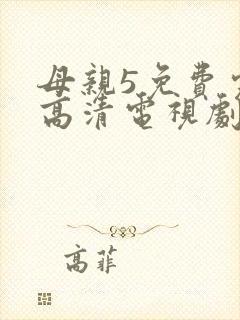 母親5免費
高清電視劇
高菲